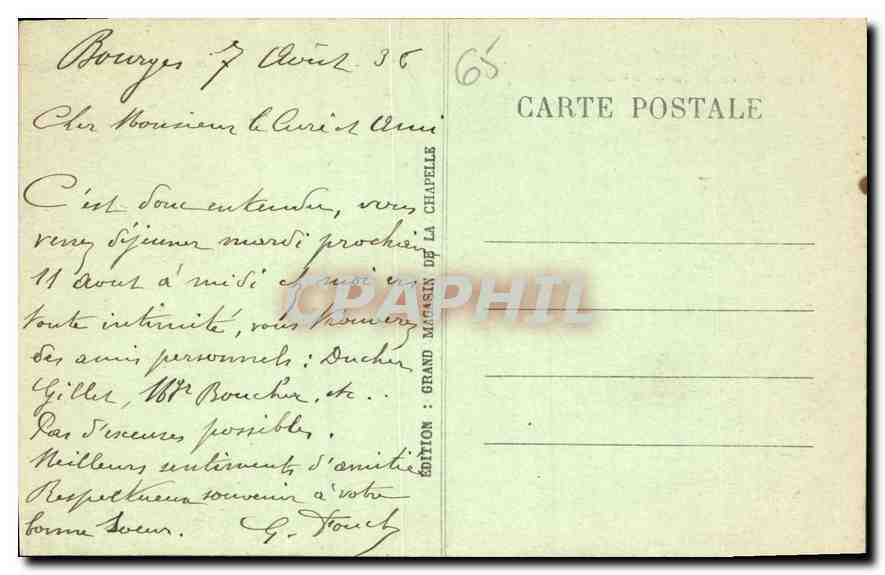 Bourges 7 Août 36
Cher Monsieur le Curé et Ami
C'est donc entendu, vous
venez déjeuner mardi prochain
11 Aout à midi chez moi en
toute intimité, vous trouverez
des amis personnels : Ducher
Gillet, Mgr Boucher, etc..
Pas d'excuses possibles.
Meilleurs sentiments d'amitié
Respectueux souvenir à votre
bonne Soeur. G.
65
CARTE POSTALE
ÉDITION : GRAND MAGASIN DE LA CHAPELLE
CPAPHIL